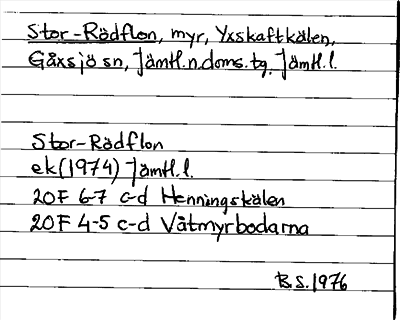 Stor-Rödflon, myr, Yxskaftkälen,
Gåxsjö sn, Jämtl.n.doms.tg. Jämtl.l.
Stor-Rädflon
ek(1974) Jämtl.l.
20F 6-7 c-d Henningskälen
20F 4-5 c-d Våtmyrbodarna
B.S. 1976